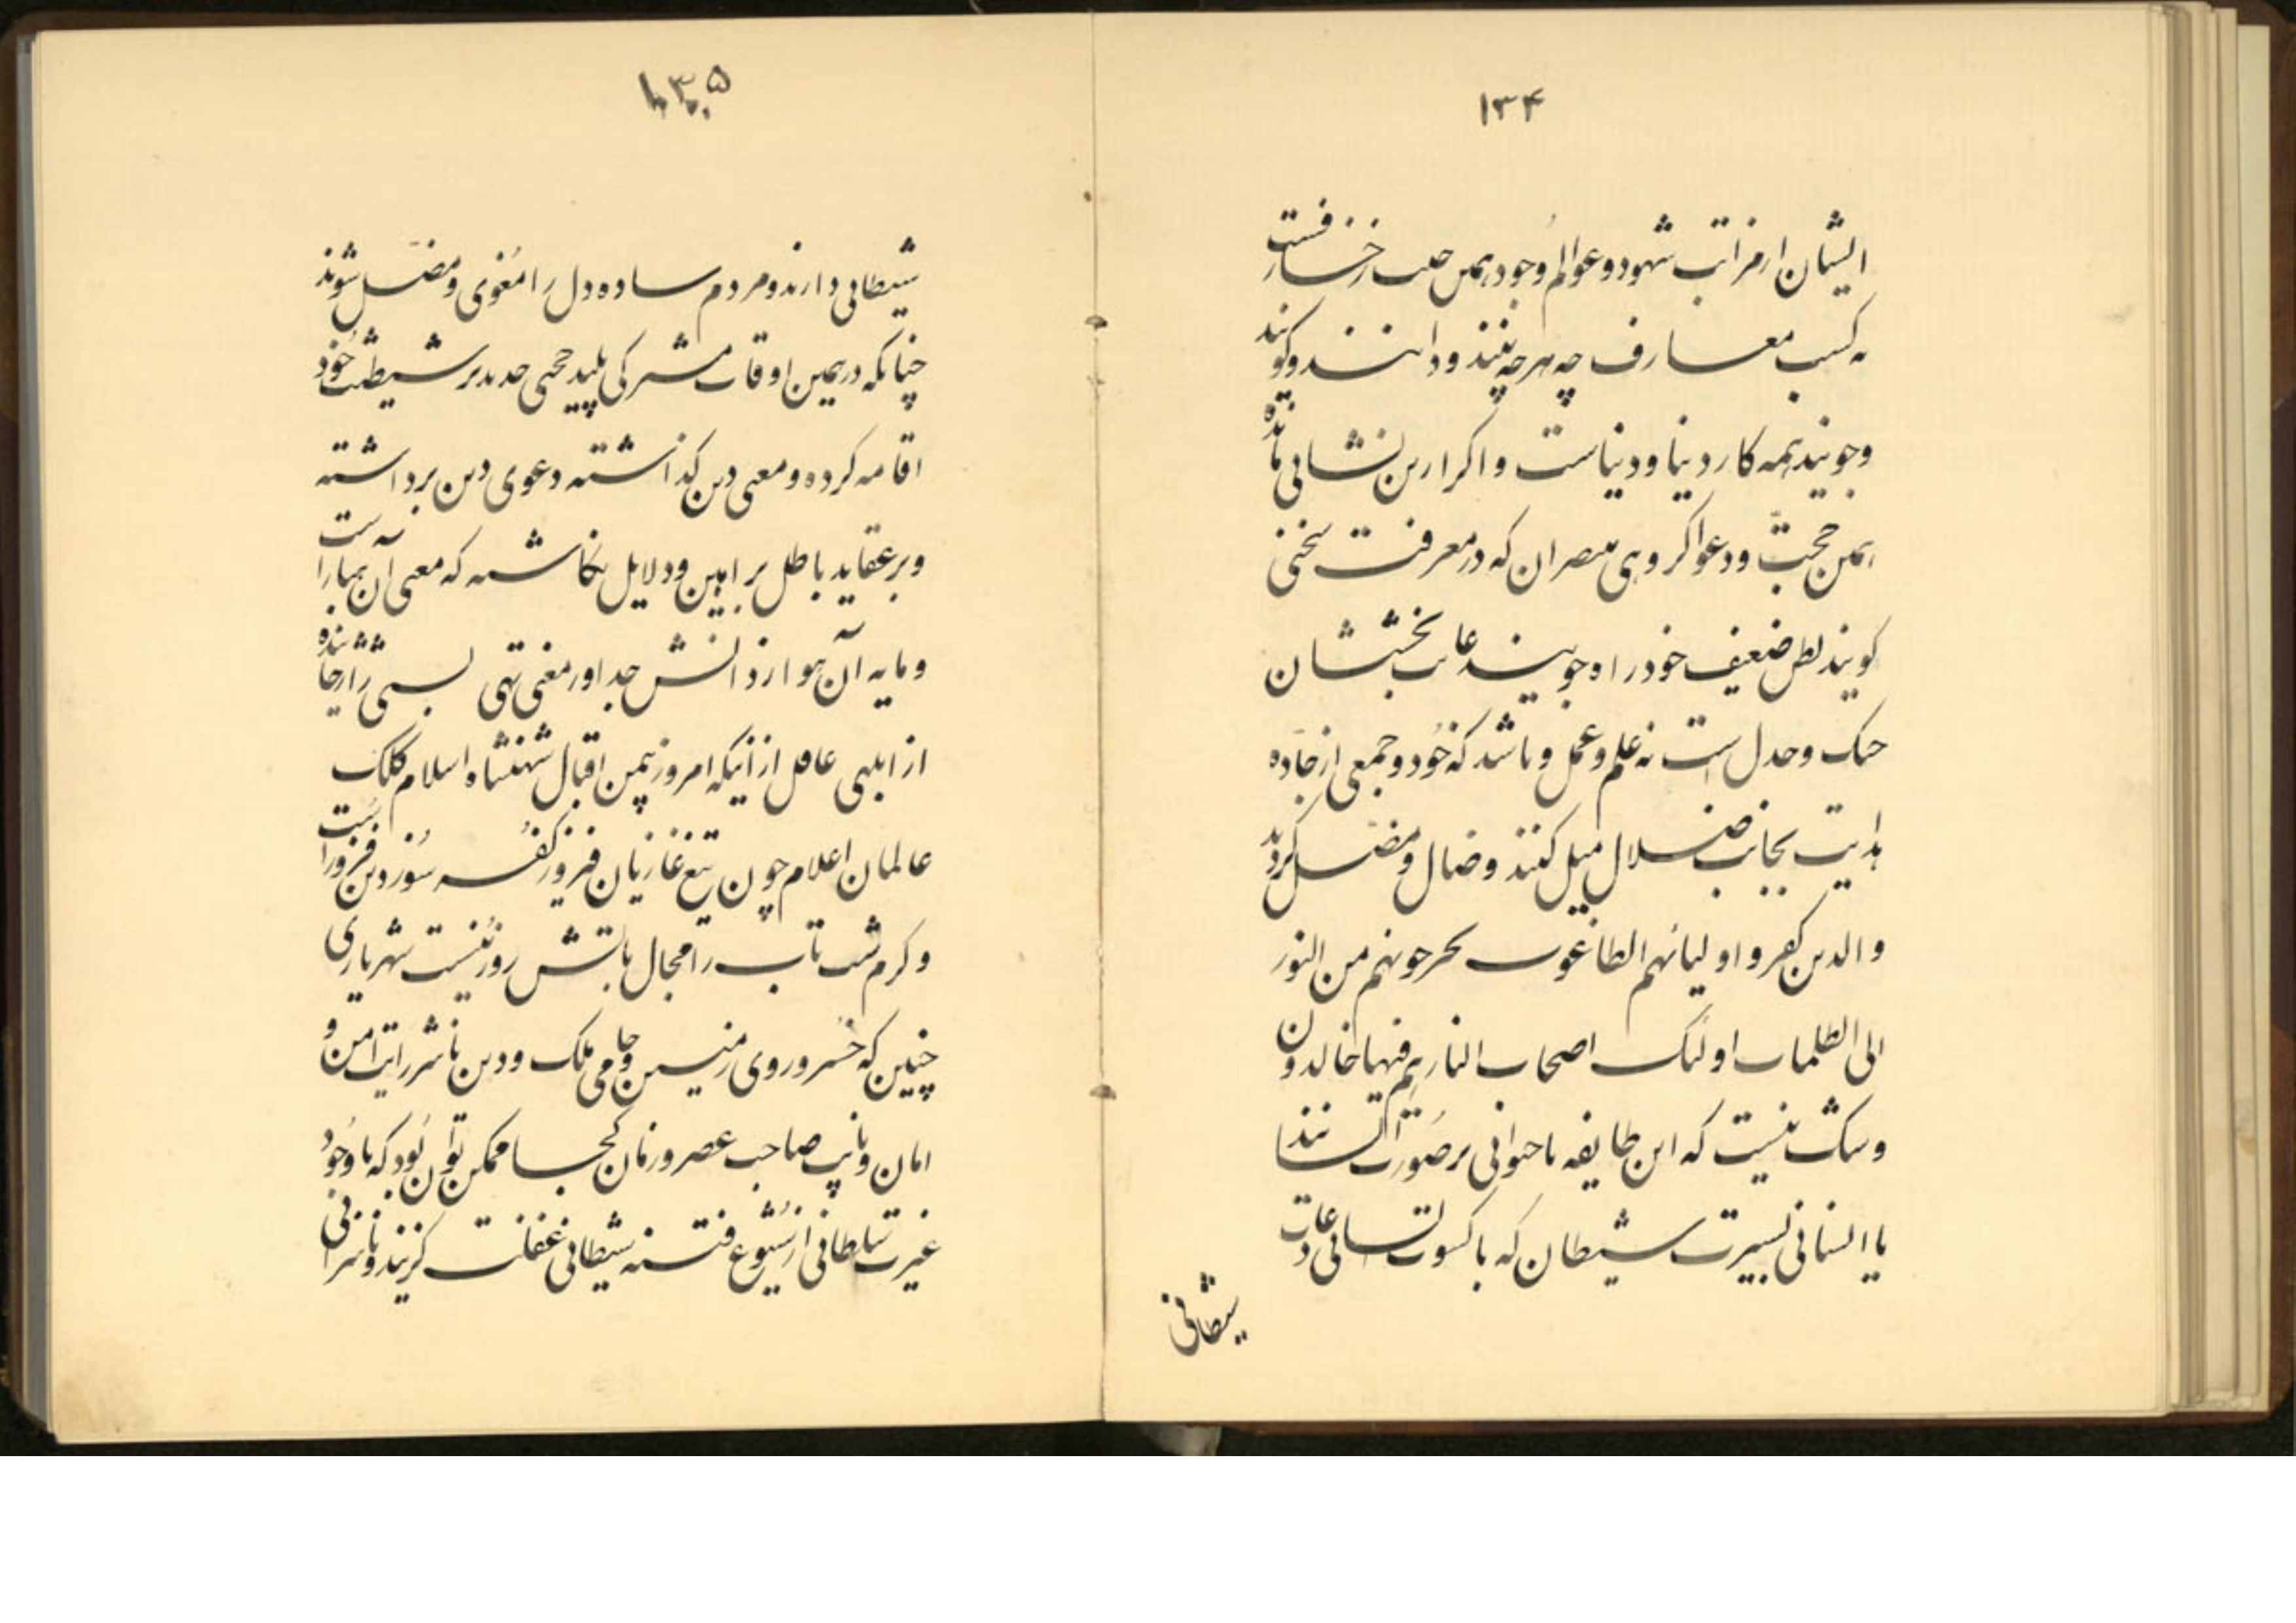 ۱۳۴
ایشان از مراتب شهود و عوالم وجود همین جلب زخارفست
نه کسب معارف چه هرچه بینند و دانند و کویند
و جویند همه کار دنیا و دنیاست و اکر از دین نشانی مانده
همین حجت و دعوا کروهی مبصران که در معرفت سخنی
کویند بطن ضعیف خود راه جویند غایب بخششان
جنک و جدل است نه علم و عمل و باشد که خود و جمعی از جاده
هدایت بجانب ضلال میل کنند و ضال و مضل کردند
والذین کفروا اولیائهم الطاغوت یخرجونهم من النور
الی الظلمات اولئک اصحاب النار هم فیها خالدون
و شک نیست که این طایفه یا حیوانی بر صورت انسانند
یا انسانی بسیرت شیطان که با کسوت انسانی عادت
شیطانی
۱۳۵
شیطانی دارند و مردم ساده دل را مغوی و مضل شوند
چنانکه در همین اوقات مشرکی پلید حجتی جدید بر شیطنت خود
اقامه کرده و معنی دین کذاشته دعوی دین برداشته
و بر عقاید باطل براهین و دلایل نکاشته که معنی آن هبا راست
و مایه آن هوا از دانش جدا و زمغنی تهی بسی ژاژخائنده
از ابلهی غافل از اینکه امروز بیمن اقبال شهنشاه اسلام کلک
عالمان اعلام چون تیغ غازیان فیروز کفر سوز و دین فروز است
و کرم شب تاب را مجال تابش روز نیست شهریاری
چنین که خسرو روی زمین و حامی ملک و دین ناشر رایت امن و
امان و نایب صاحب عصر و زمان کجا ممکن توان بود که با وجود
غیرت سلطانی از شیوع فتنه شیطانی غفلت کزیند و ناسزائی